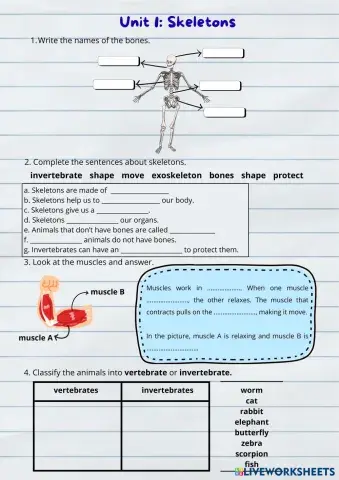 Unit 1: Skeletons
1.Write the names of the bones.
2. Complete the sentences about skeletons.
invertebrate shape move exoskeleton bones shape protect
a. Skeletons are made of _______________
b. Skeletons help us to _______________ our body.
c. Skeletons give us a ______________.
d. Skeletons ______________ our organs.
e. Animals that don't have bones are called ____________
f. ______________ animals do not have bones.
g. Invertebrates can have an ________________ to protect them.
3. Look at the muscles and answer.
muscle B
muscle A
Muscles work in .................. When one muscle
....................., the other relaxes. The muscle that
contracts pulls on the ....................., making it move.
In the picture, muscle A is relaxing and muscle B is
..........................
4. Classify the animals into vertebrate or invertebrate.
vertebrates invertebrates
worm
cat
rabbit
elephant
butterfly
zebra
scorpion
fish
LIVEWORKSHEETS